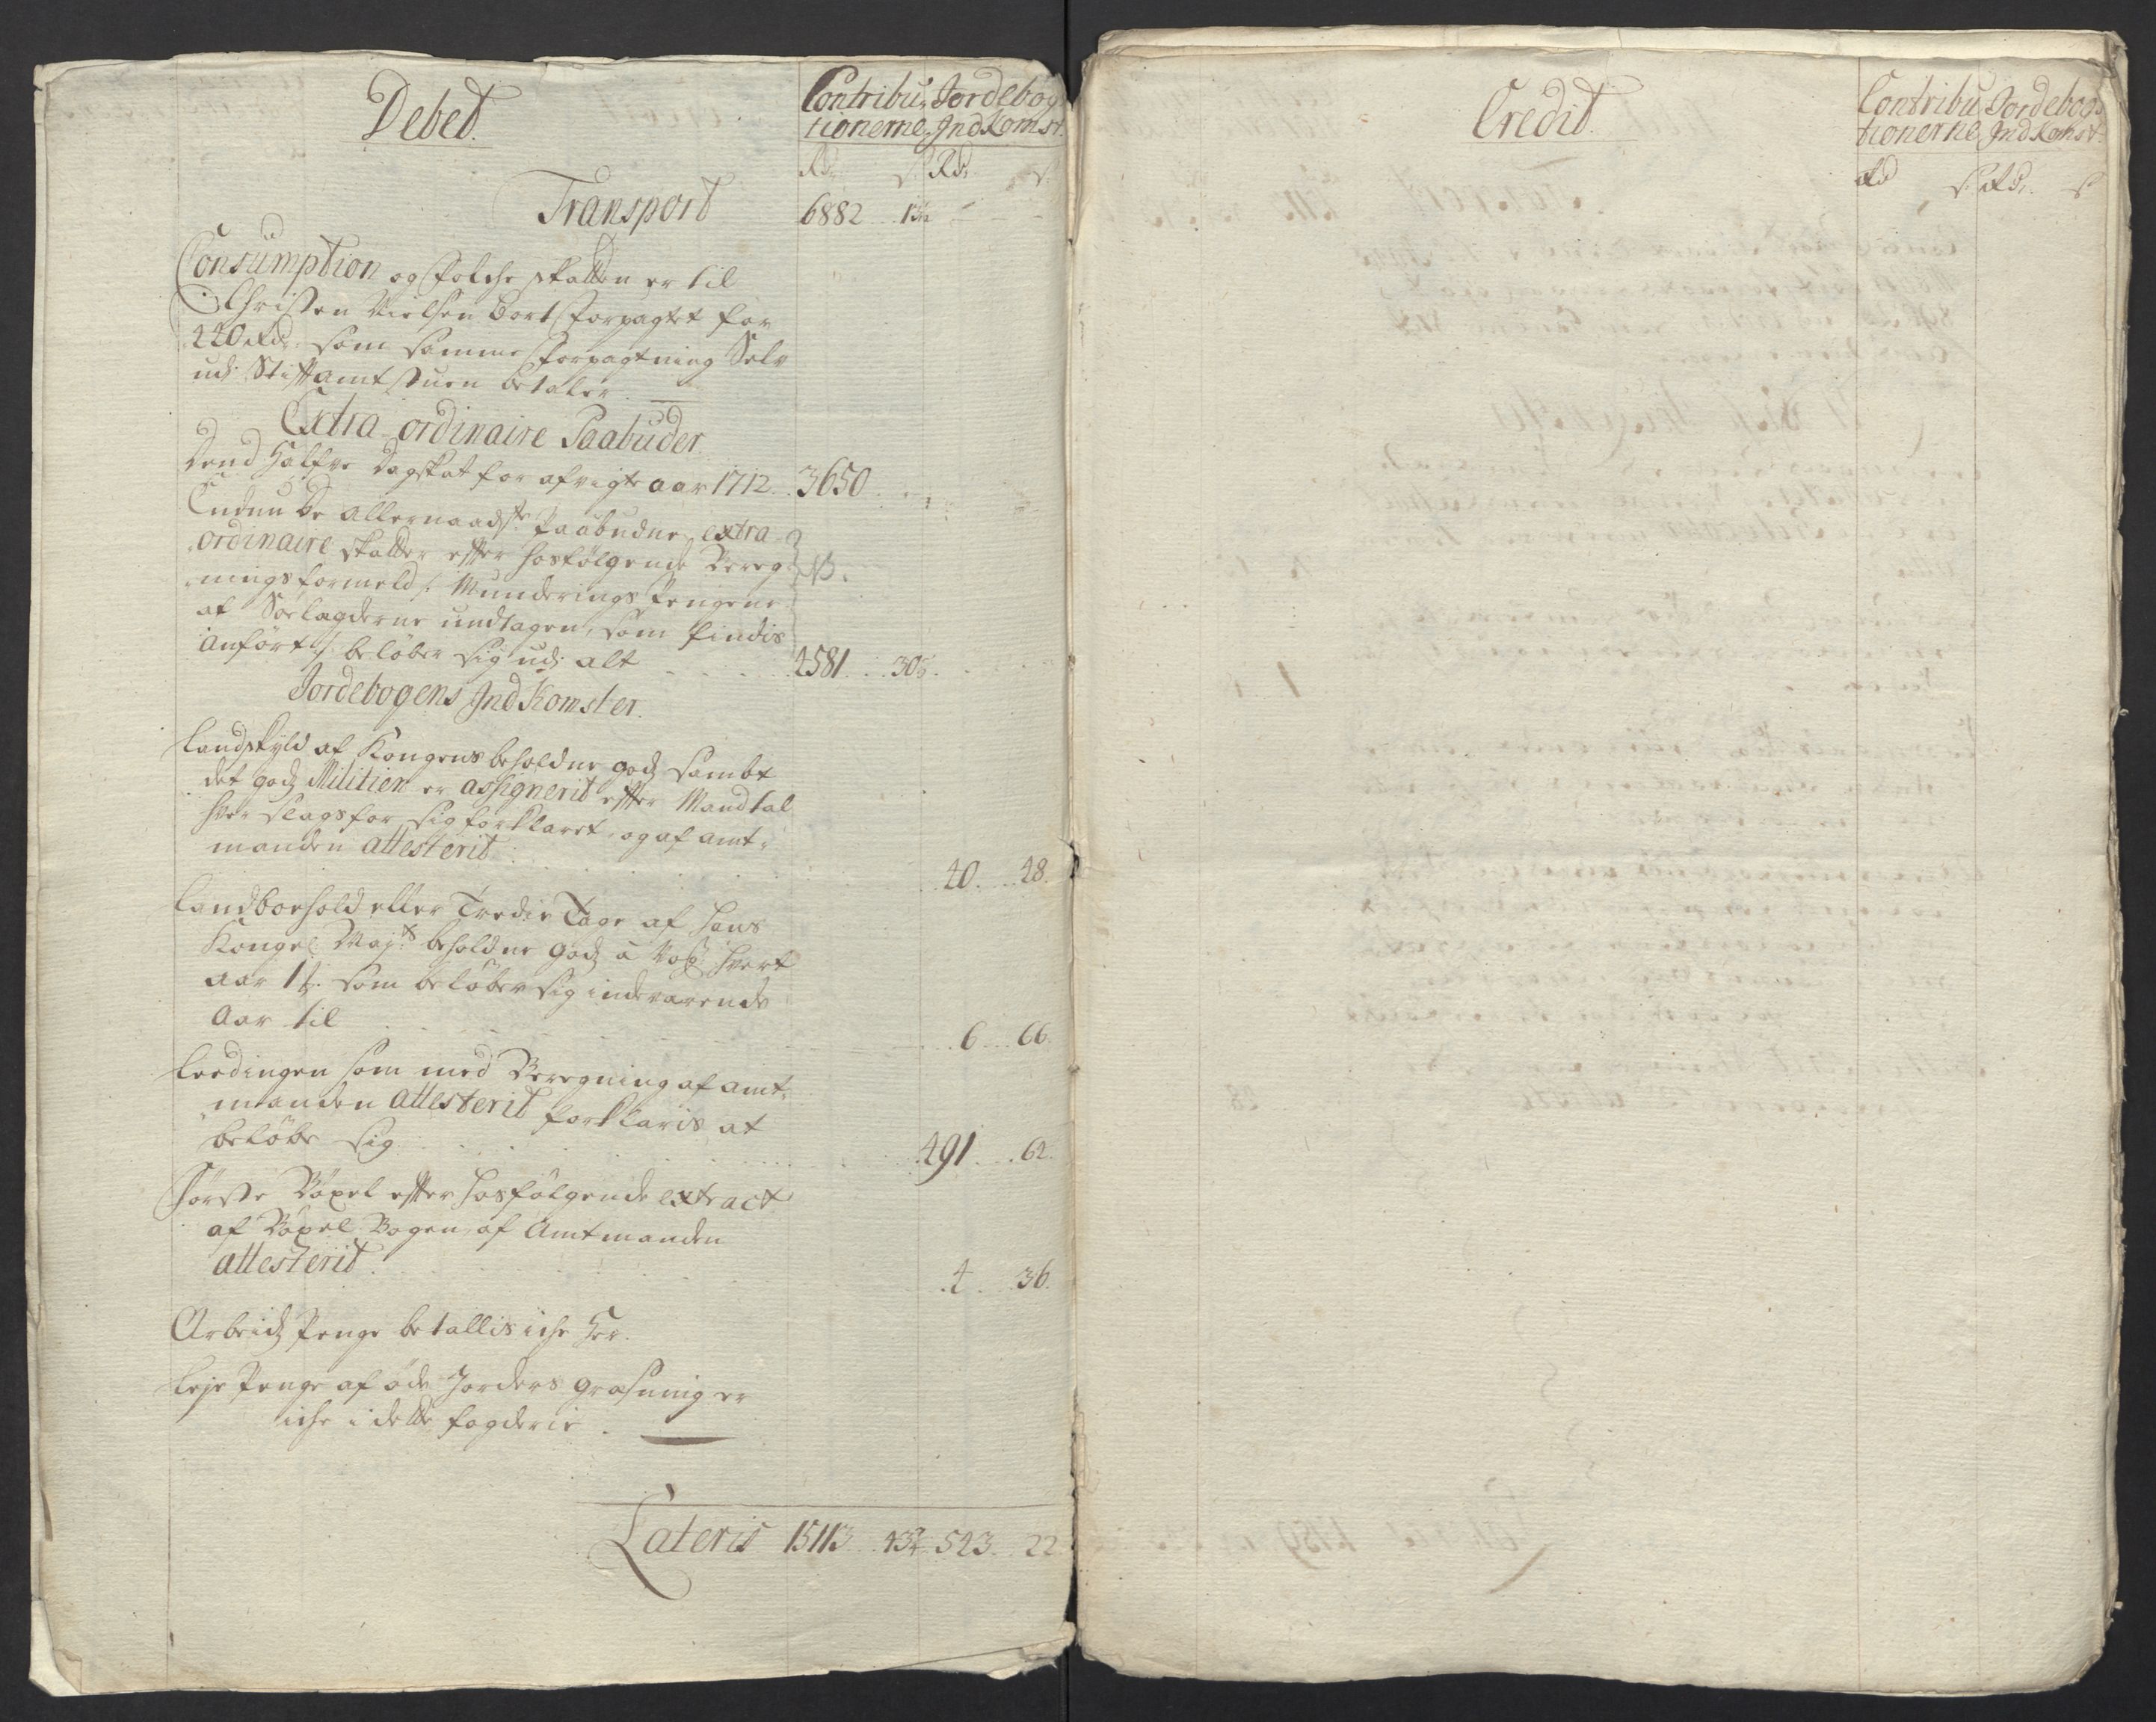 Debet.
Contribu, Jordebog
tionerne, IndKomst.
Rdr s. Rdr s.
Transport 6882 . . 13½ - - -
Consumption og Folcheskatten er til
Christen Nielsen bortforpagtet for
420 Rdr. som samme Forpagtning Selv
udi Stiftamtstuen betaler.
Extra ordinaire Paabuder.
Dend Halfve Dagskat for afvigte aar 1712 . . 3650
Endnu De allernaadste Paabudne, extra
ordinaire skatter efter hosfølgende Bereg-
nings formeld /: Munderings Pengene
af Søelagderne undtagen, som findis
Anført :/ beløber sig udi alt . . . . 4581 . . 30
Jordebogens IndKomster.
Landskyld af Kongens beholdne godz sambt
det godz Militien er assignerit efter Mandtal
hver slags for sig forklaret, og af amt-
manden attesterit . . . . 40 . . 48.
Landboehold eller Tredie Tage af Hans
Kongl: Mayts beholdne godz
aar 1 som beløber sig indeværende
Aar til . . . . 6 . . 66.
Leedingen som med Beregning af amt-
manden attesterit forklaris at
beløbe sig . . . . 491 . . 62.
Første Bøxel efter hosfølgende extract
af Bøxel Bogen, af Amtmanden
attesterit . . . . 4 . . 36.
Arbeidz Penge betallis iche Her.
Leje Penge af øde Jorders græsning er
iche i dette fogderie.
Lateris 15113 . . 43¾ 543 . . 22
Credit.
Contribu Jordebogs
tionerne, IndKomst.
Rdr s. Rdr. s